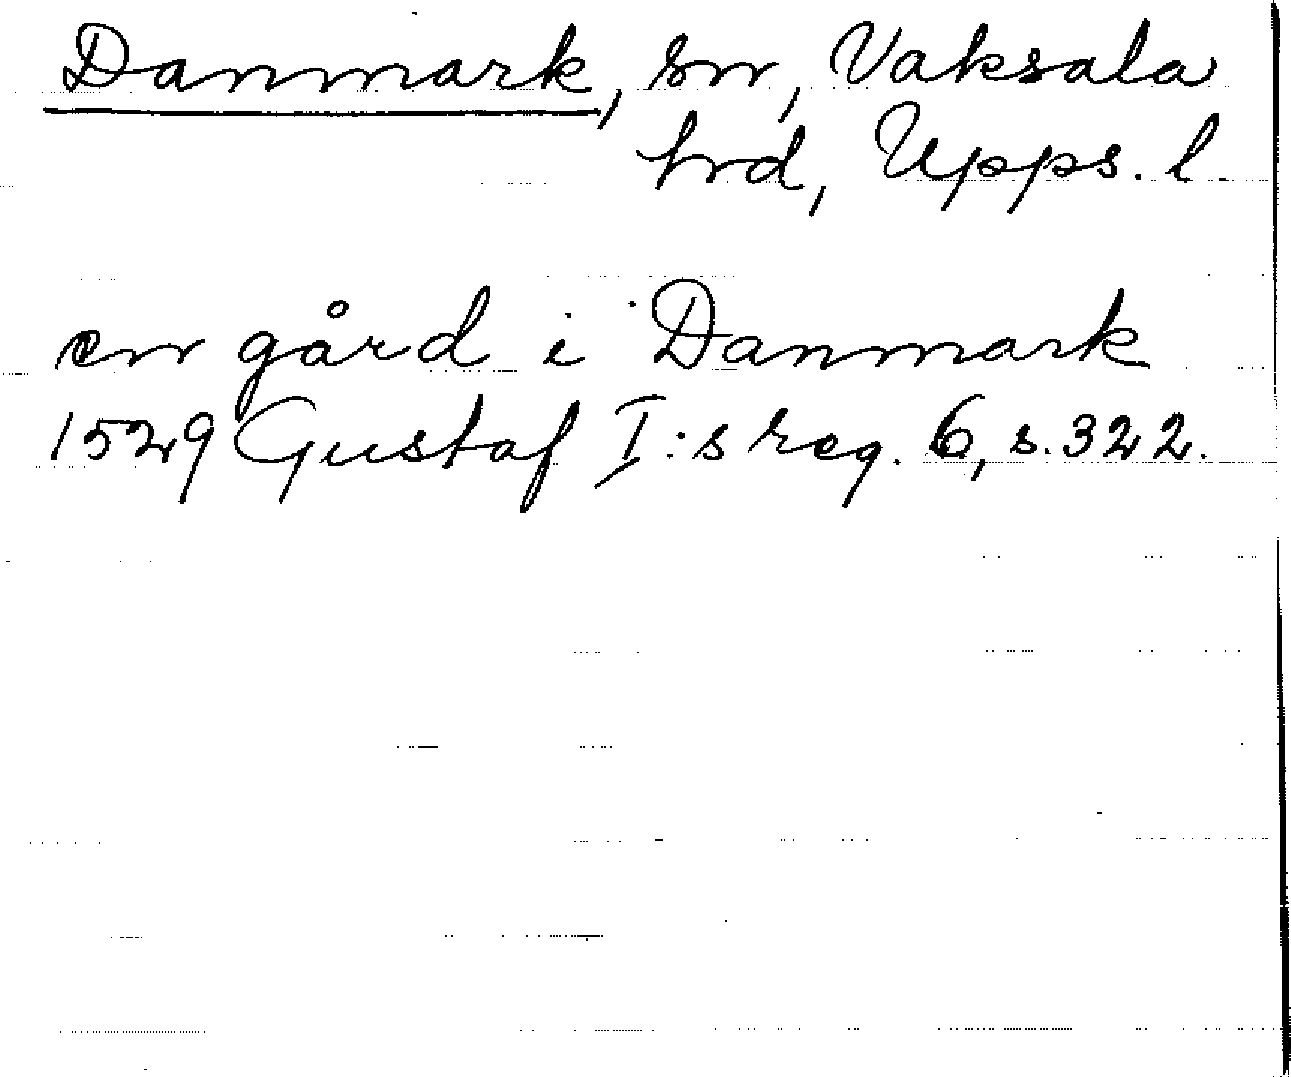 Danmark, sn, Vaksala
hrd, Upps. l.
en gård i Danmark
1529 Gustaf I:s reg. 6, s. 322.